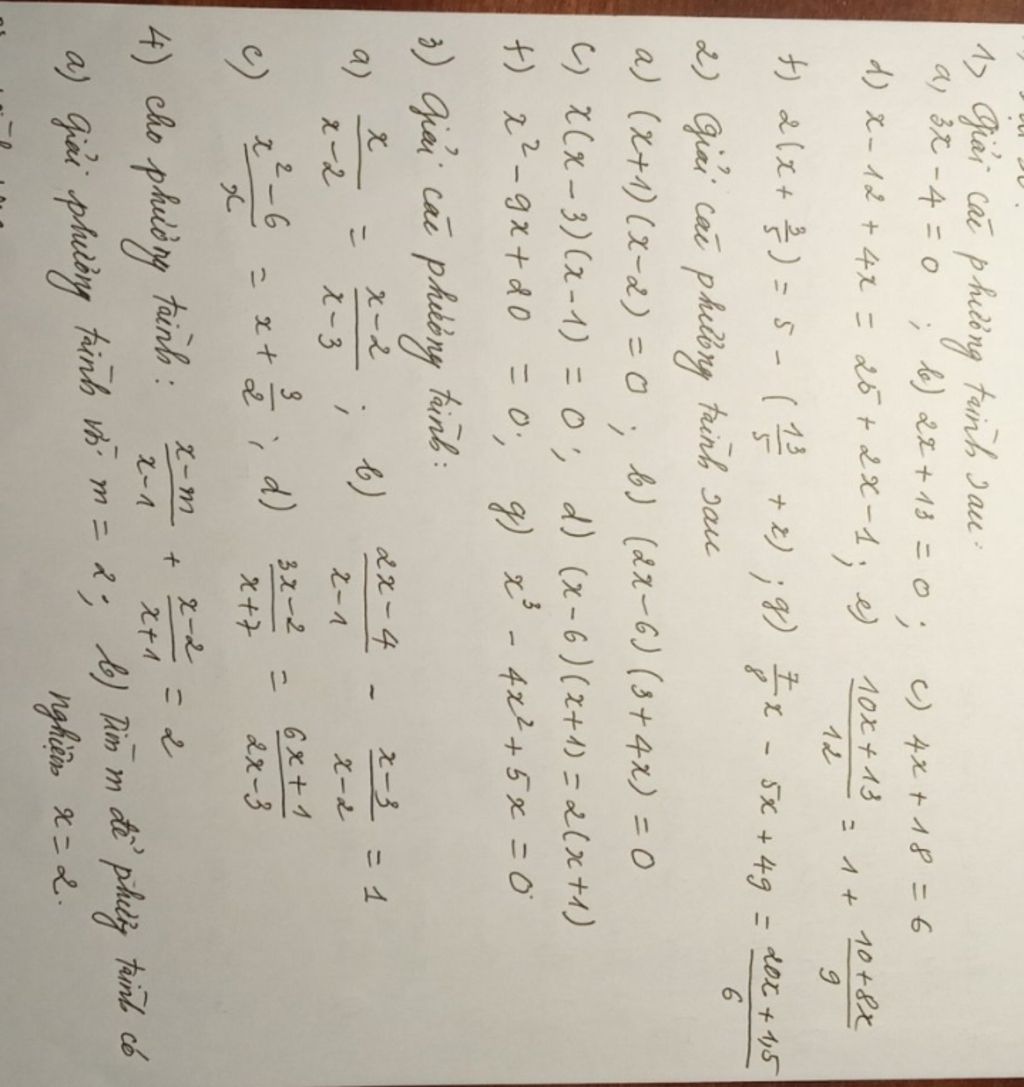 1) Giải các phương trình sau:
a, 3x - 4 = 0 ; b) 2x + 13 = 0 ; c) 4x + 18 = 6
d) x - 12 + 4x = 25 + 2x - 1 ; e) (10x + 13)/12 = 1 + (10 + 8x)/9
f) 2(x + 3/5) = 5 - (13/5 + x) ; g) 7/8 x - 5x + 49 = (20x + 1,5)/6
2) Giải các phương trình sau
a) (x+1)(x-2) = 0 ; b) (2x-6)(3+4x) = 0
c) x(x-3)(x-1) = 0 ; d) (x-6)(x+1) = 2(x+1)
f) x² - 9x + 20 = 0 ; g) x³ - 4x² + 5x = 0
3) Giải các phương trình:
a) x/(x-2) = (x-2)/(x-3) ; b) (2x-4)/(x-1) - (x-3)/(x-2) = 1
c) (x²-6)/x = x + 3/2 ; d) (3x-2)/(x+7) = (6x+1)/(2x-3)
4) cho phương trình: (x-m)/(x-1) + (x-2)/(x+1) = 2
a) Giải phương trình với m = 2 ; b) Tìm m để phương trình có
nghiệm x = 2.